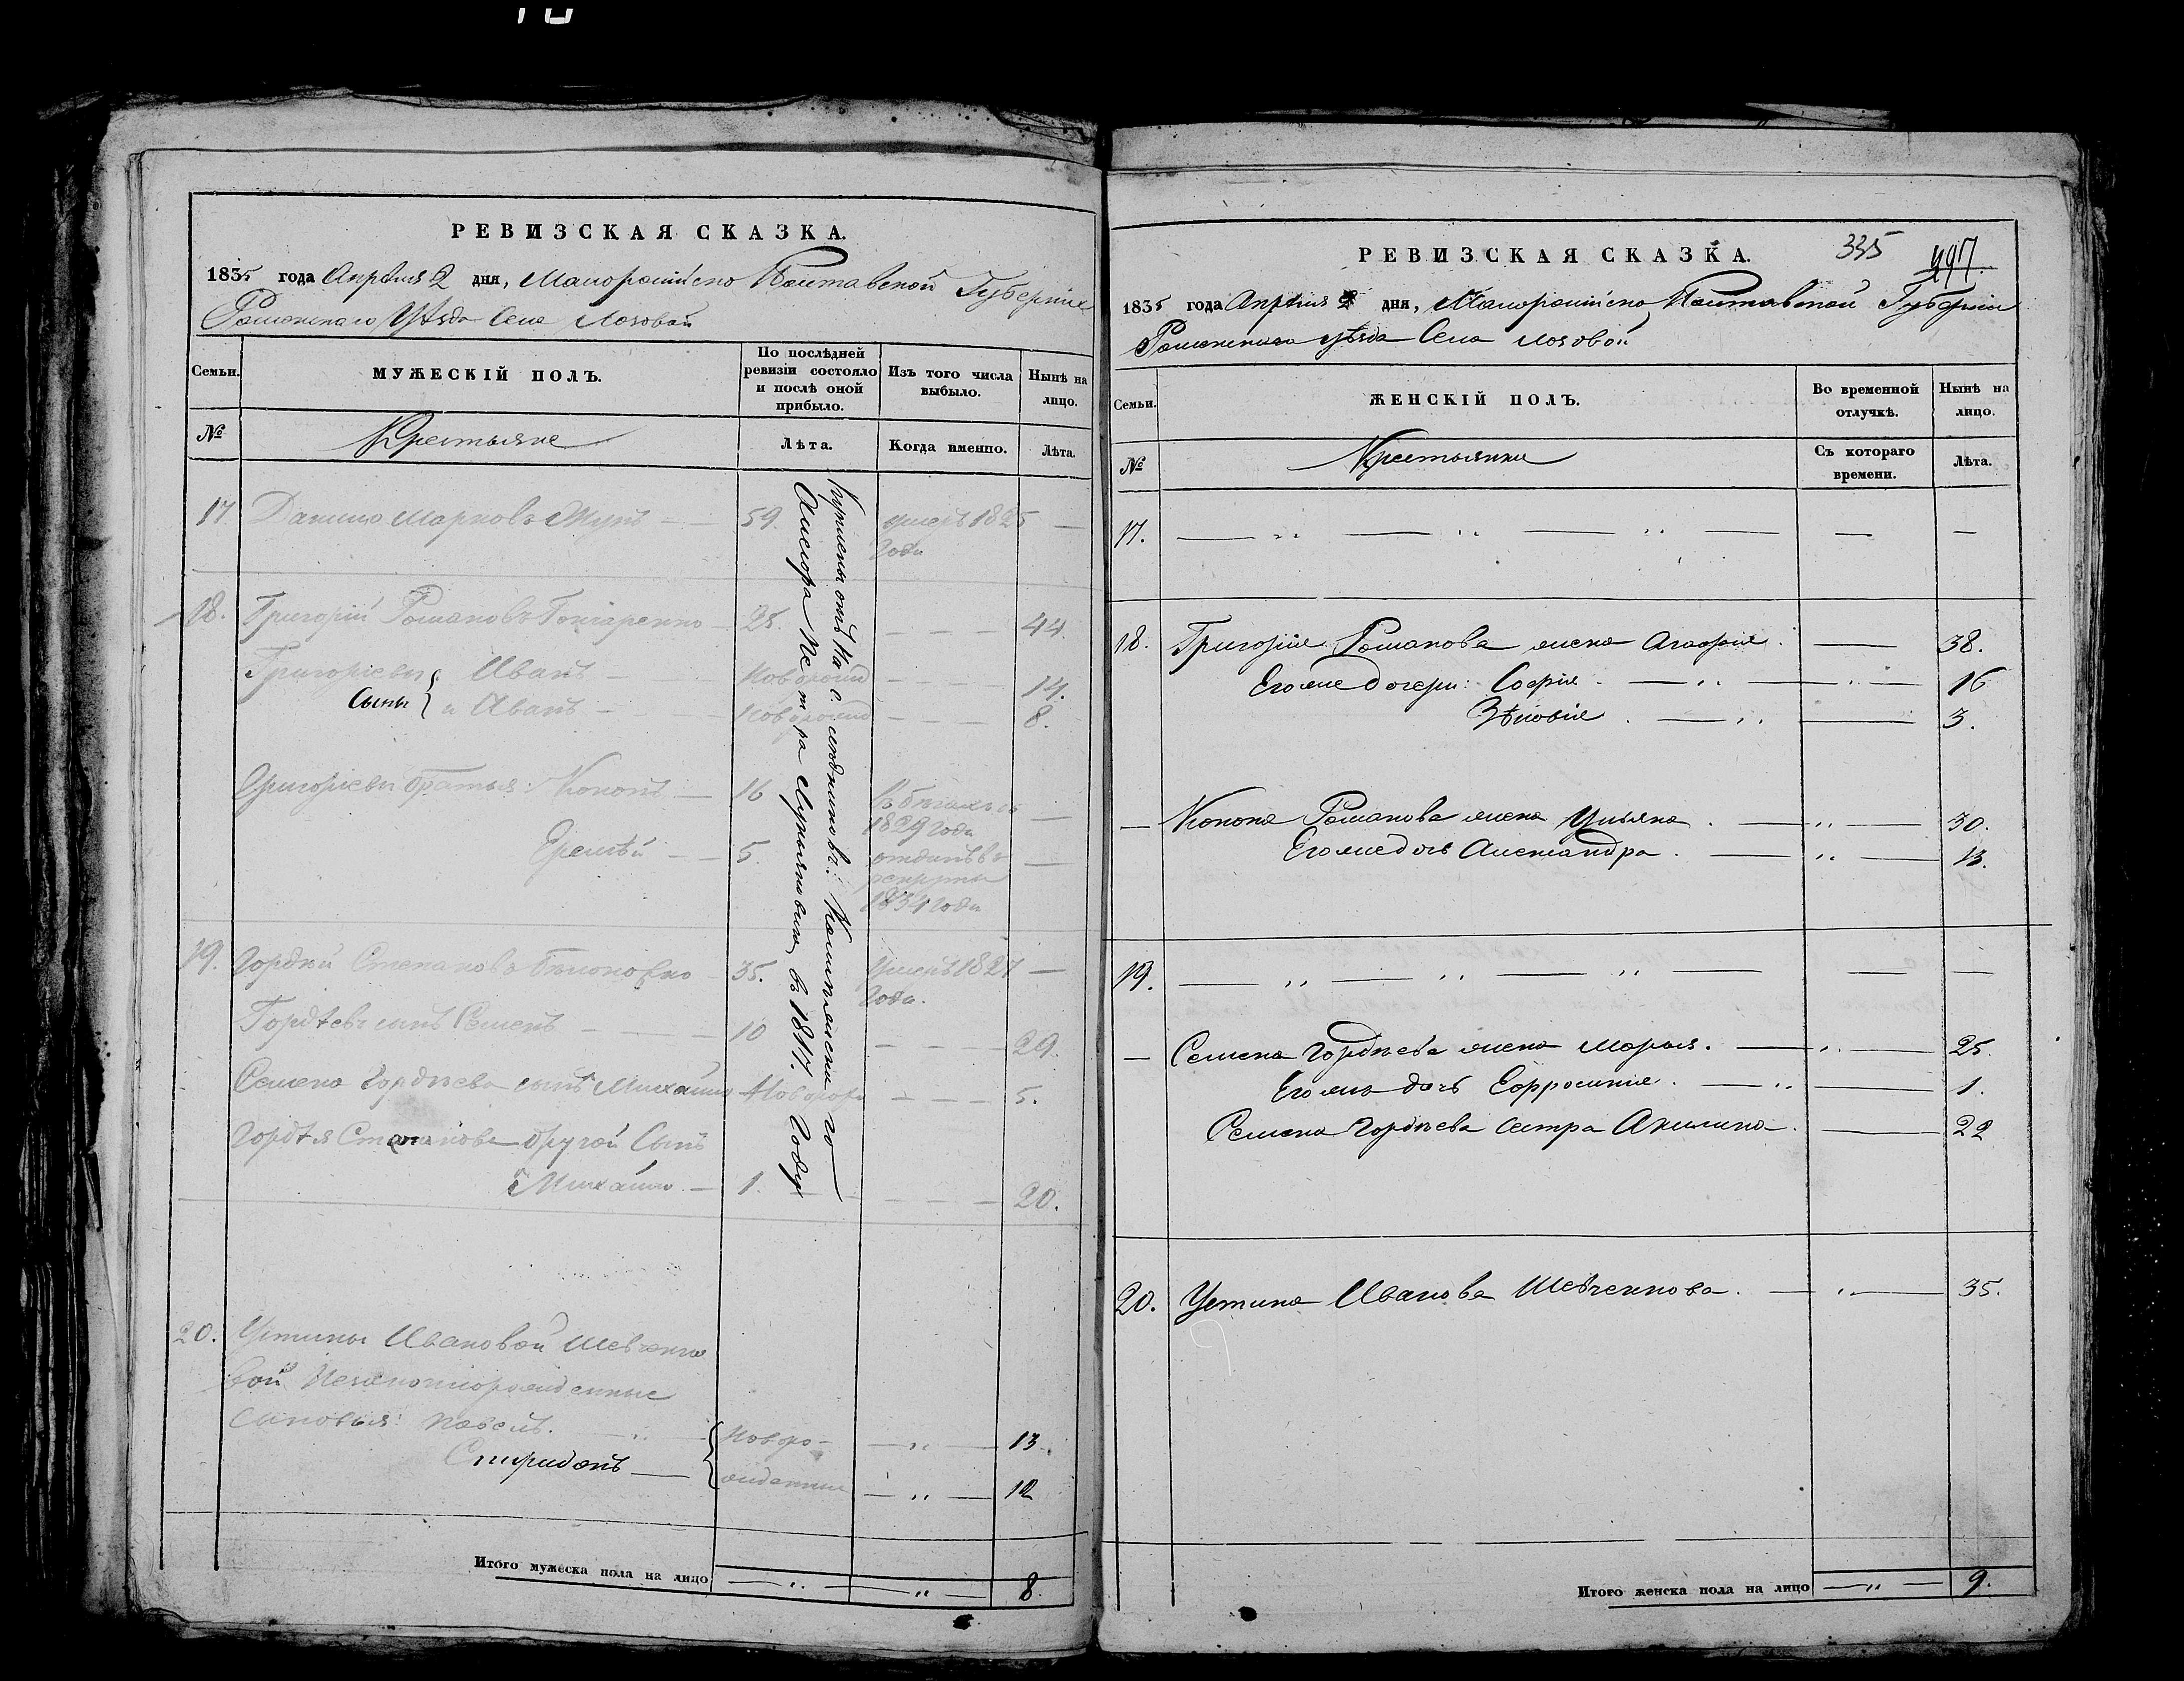 РЕВИЗСКАЯ СКАЗКА.
1835 года Апреля 2 дня, Малороссійско Полтавской Губерніи
Роменскаго Уѣзда Села Лозовой
Семьи.
МУЖЕСКІЙ ПОЛЪ.
По послѣдней ревизіи состояло и послѣ оной прибыло.
Изъ того числа выбыло.
Нынѣ на лицо.
№
Крестьяне
Лѣта.
Когда именно.
Лѣта.
17. Данило Марковъ 59. умеръ 1825 —
года
18. Григорій Романовъ Гончаренко 25. — — — 44.
Григоріевы Иванъ — Новорожд — — — 14.
сыны { и Иванъ — Новорожд — — — 8.
Григоріевы братья: Кононъ — 16 въ бегахъ съ —
1829 года
Еремѣй — 5. отданъ въ —
рекруты
1834 года
19. Гордѣй Степановъ 35. Умеръ 1827 —
года.
Гордѣевъ сынъ Семенъ — 10 — — — 29.
Семена Гордѣева сынъ Михайло Новорож — — — 5.
Гордѣя Степанова другой Сынъ
Михайло — 1. — — — 20.
Куплены отъ Наследниковъ: Колежскаго
Асисора Петра Лукьяновича въ 1817. Году
20. Устины Ивановой Шевченко
вой Незаконнорожденные
Сыновья: Павелъ. { Новоро- — „ — 13.
Спиридонъ — жденные — „ — 12
Итого мужеска пола на лицо — „ — „ — 8.
РЕВИЗСКАЯ СКАЗКА.
335
497.
1835 года Апреля 2 дня, Малороссійско Полтавской Губерніи
Роменскаго уѣзда Села Лозовой
Семьи.
ЖЕНСКІЙ ПОЛЪ.
Во временной отлучкѣ.
Нынѣ на лицо.
№
Крестьянки
Съ котораго времени.
Лѣта.
17. — „ — „ — „ — — —
18. Григорія Романова жена Агафія. — 38.
Его же дочери: Софія. — „ — „ — 16
Зѣновія. — „ — 3.
— Конона Романова жена Ульяна. — „ — 30.
Его же дочь Александра. — „ — 13.
19. — „ — „ — „ — — —
— Семена Гордѣева жена Марья. — „ — 25.
Его же дочь Ефросинія. — „ — 1.
Семена Гордѣева Сестра Акилина. — 22
20. Устина Иванова Шевченкова. — „ — 35.
Итого женска пола на лицо — „ — 9.